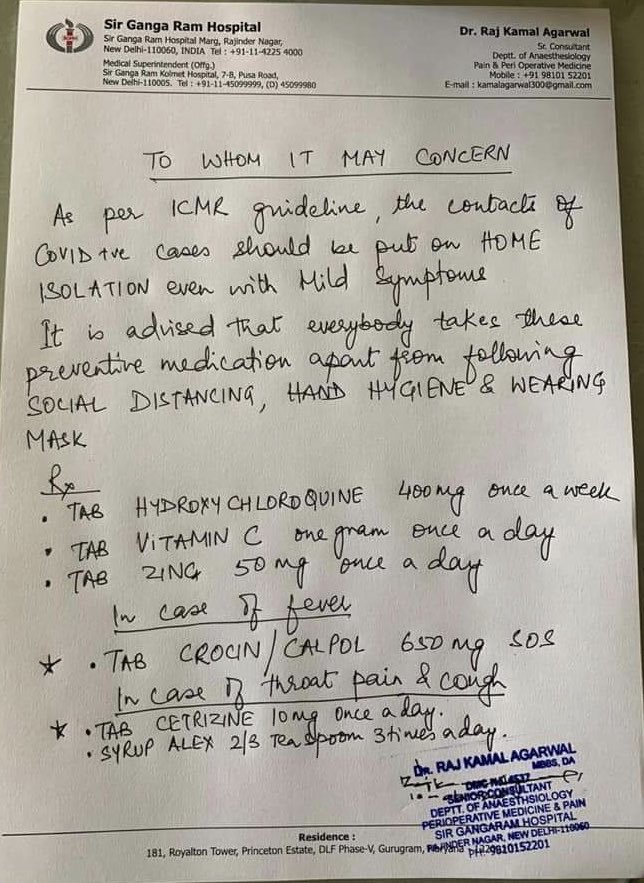 Sir Ganga Ram Hospital
Sir Ganga Ram Hospital Marg, Rajinder Nagar,
New Delhi-110060, INDIA Tel : +91-11-4225 4000
Medical Superintendent (Offg.)
Sir Ganga Ram Kolmet Hospital, 7-B, Pusa Road,
New Delhi-110005. Tel : +91-11-45099999, (D) 45099980
Dr. Raj Kamal Agarwal
Sr. Consultant
Deptt. of Anaesthesiology
Pain & Peri Operative Medicine
Mobile : +91 98101 52201
E-mail : kamalagarwal300@gmail.com
TO WHOM IT MAY CONCERN
As per ICMR guideline, the contacts of
COVID +ve cases should be put on HOME
ISOLATION even with Mild Symptoms
It is advised that everybody takes these
preventive medication apart from following
SOCIAL DISTANCING, HAND HYGIENE & WEARING
MASK
Rx
• TAB HYDROXYCHLOROQUINE 400mg once a week
• TAB VITAMIN C one gram once a day
• TAB ZINC 50 mg once a day
In case of fever
• TAB CROCIN/CALPOL 650 mg SOS
In case of throat pain & cough
• TAB CETRIZINE 10mg once a day.
• SYRUP ALEX 2/3 Teaspoom 3times a day.
Dr. RAJ KAMAL AGARWAL
MBBS, DA
SENIOR CONSULTANT
DEPTT. OF ANAESTHSIOLOGY
PERIOPERATIVE MEDICINE & PAIN
SIR GANGARAM HOSPITAL
RAJINDER NAGAR, NEW DELHI-110060
PH. 9810152201
Residence :
181, Royalton Tower, Princeton Estate, DLF Phase-V, Gurugram,